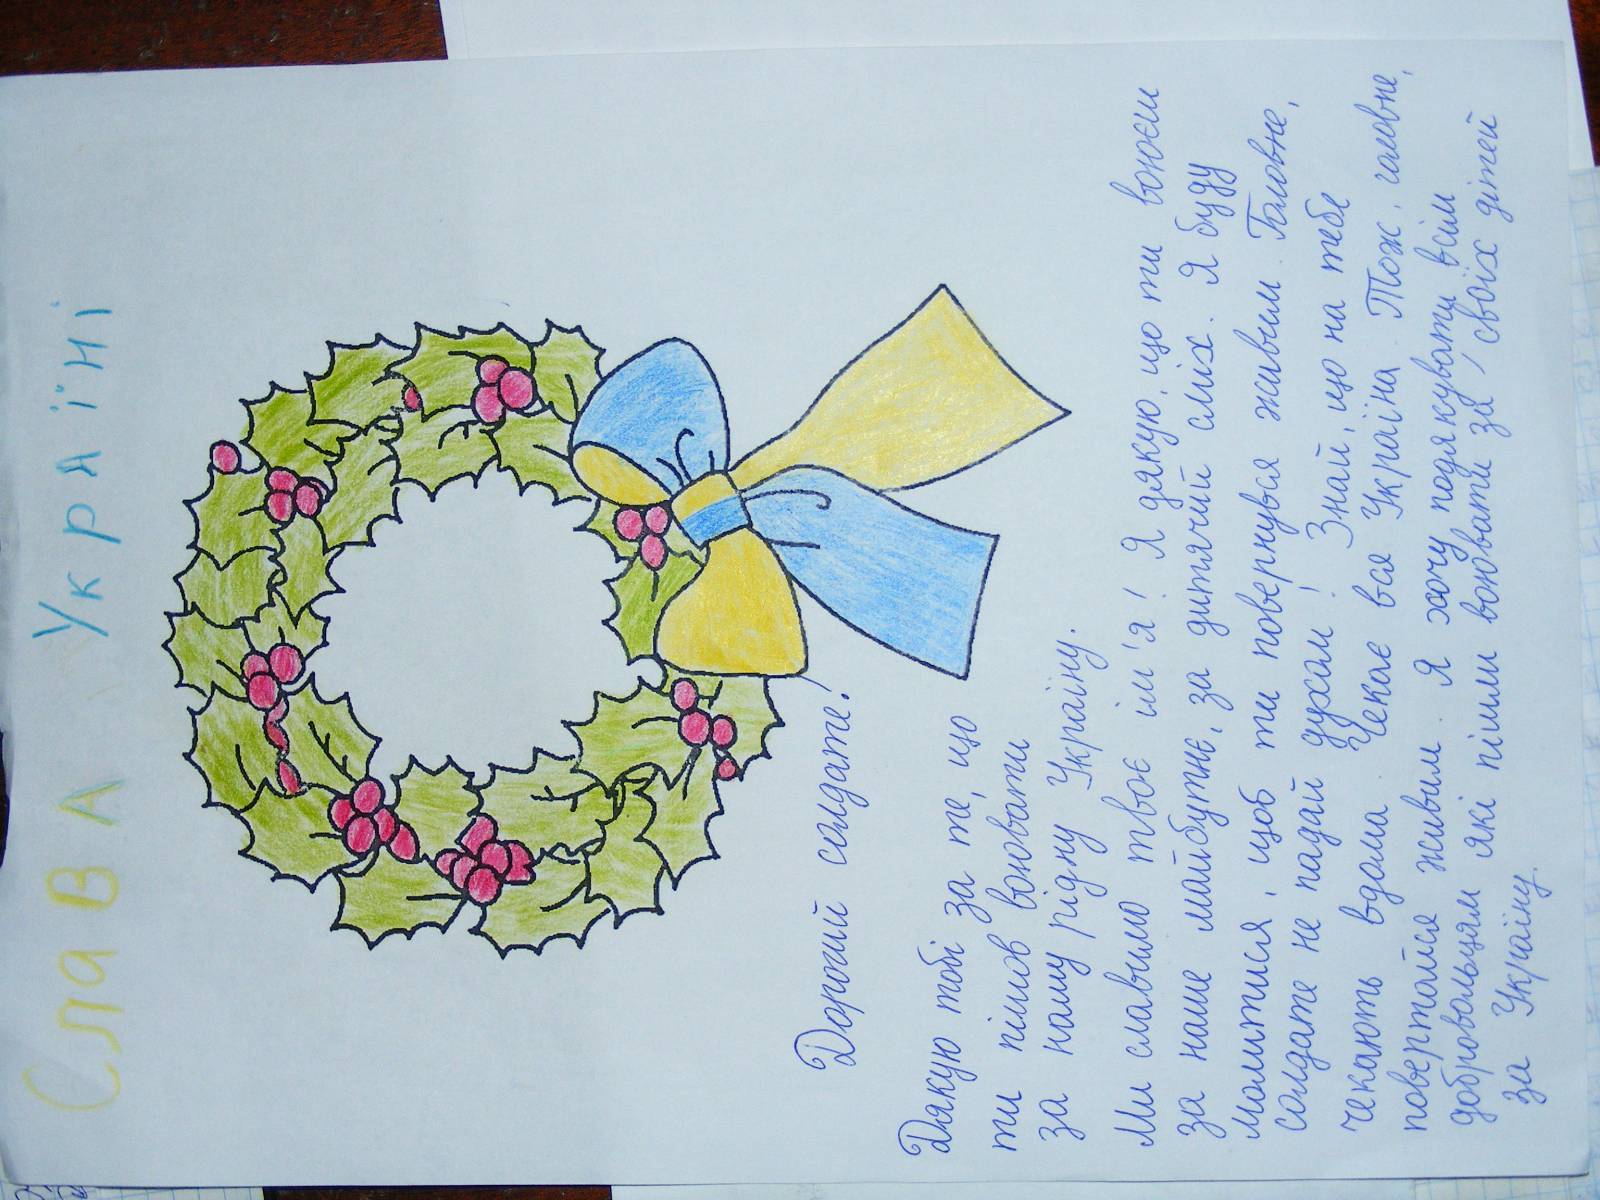 Слава Україні
Дорогий солдате!
Дякую тобі за те, що
ти пішов воювати
за нашу рідну Україну.
Ми славимо твоє ім'я! Я дякую, що ти воюєш
за наше майбутнє, за дитячий сміх. Я буду
молитися, щоб ти повернувся живим. Головне,
солдате не падай духом! Знай, що на тебе
чекають вдома. Чекає вся Україна. Тож, головне,
повертайся живим. Я хочу подякувати всім
добровольцям які пішли воювати за своїх дітей
за Україну.